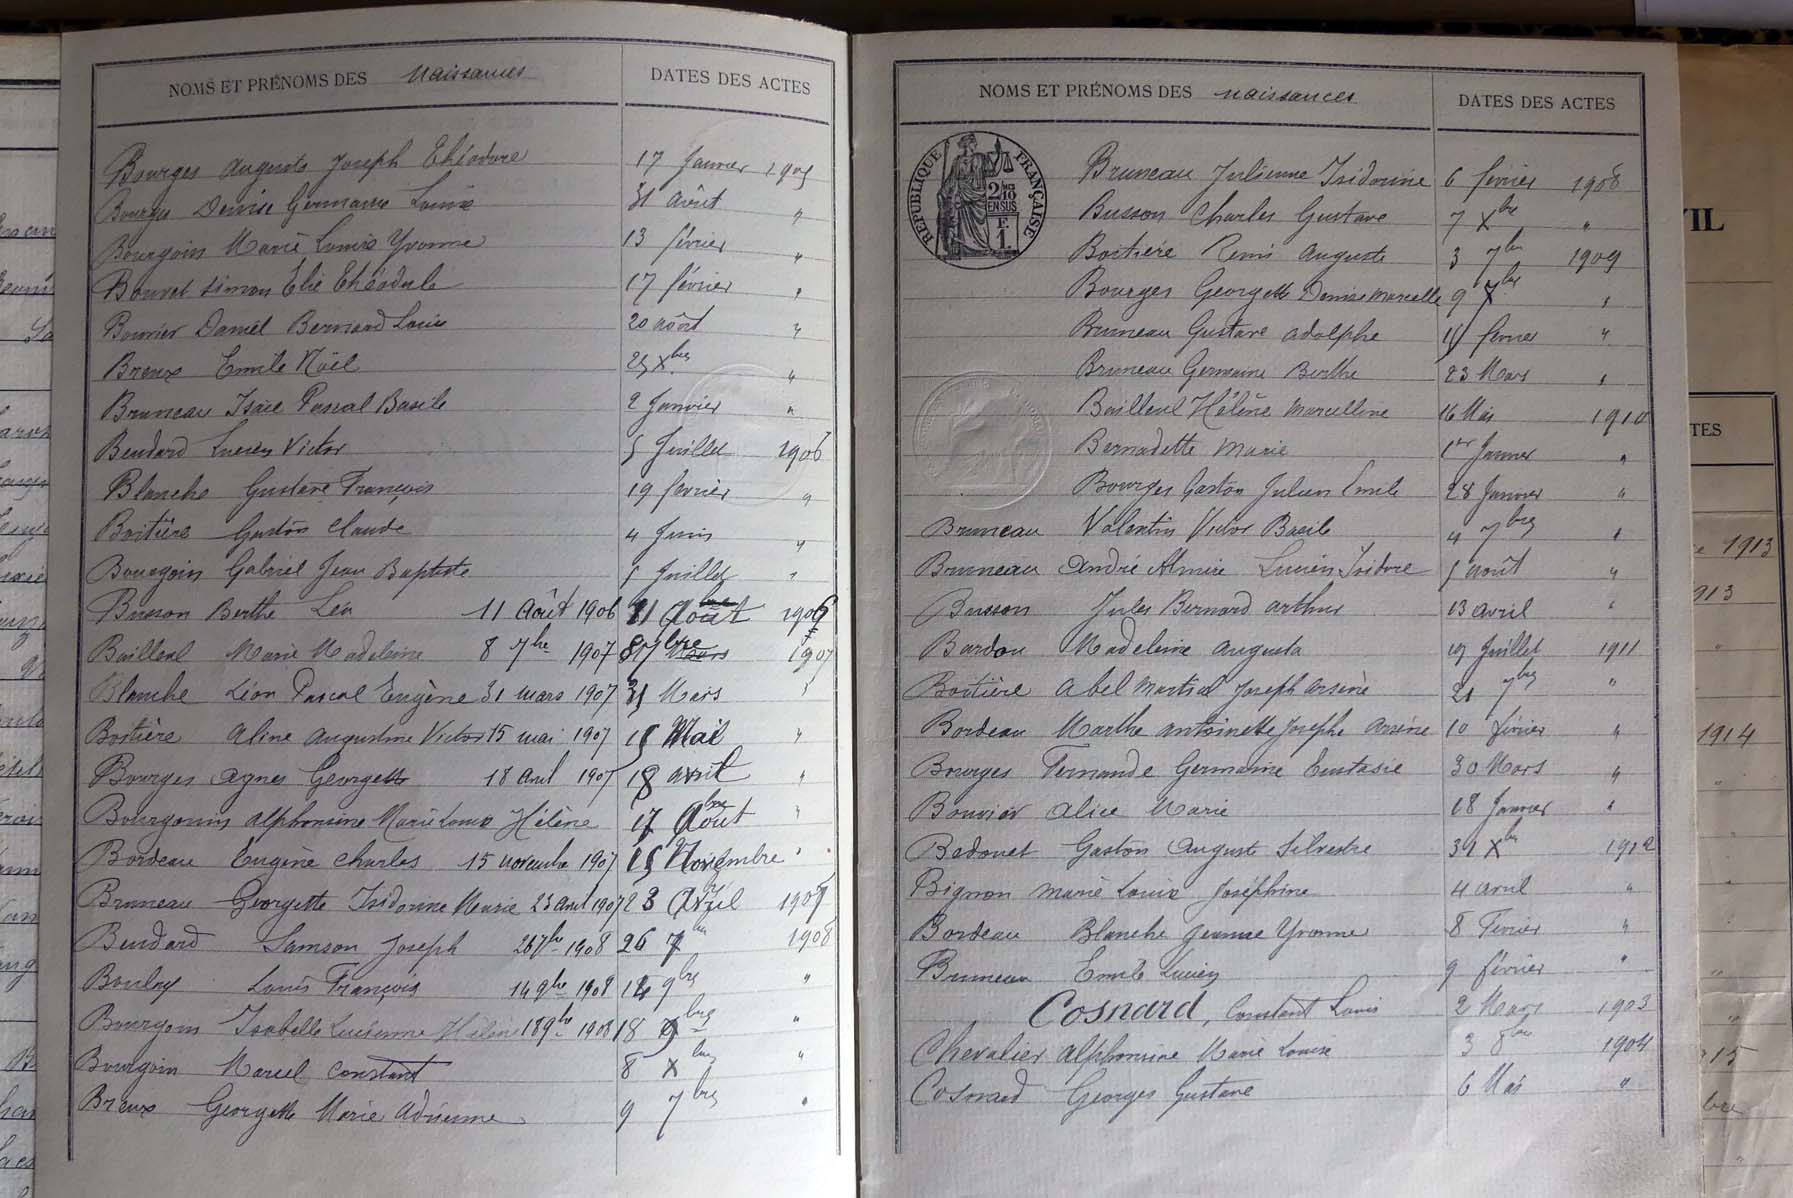 NOMS ET PRÉNOMS DES Naissances DATES DES ACTES
Bourges Auguste Joseph Théodore 17 Janvier 1905
Bourges Denise Germaine Louise 31 Août "
Bourgoin Marie Louise Yvonne 13 février "
Bouvet Simon Elie Théodule 17 février "
Bouvier Daniel Bernard Louis 20 août "
Breux Emile Noël 25 Xbre "
Bruneau Isaïe Pascal Basile 2 Janvier "
Beudard Lucien Victor 5 Juillet 1906
Blanche Gustave François 19 février "
Boitière Gaston Claude 4 Juin "
Bourgoin Gabriel Jean Baptiste 5 Juillet "
Busson Berthe Léa 11 Août 1906 11 Août 1906
Bailleul Marie Madeleine 8 7bre 1907 8 7bre 1907
Blanche Léon Pascal Eugène 31 mars 1907 31 Mars "
Boitière Aline Augustine Victor 15 mai 1907 15 Mai "
Bourges Agnes Georgette 18 Avril 1907 18 avril "
Bourgouin Alphonsine Marie Louise Hélène 17 Août "
Bordeau Eugène Charles 15 novembre 1907 15 Novembre "
Bruneau Georgette Isidorine Marie 23 Avril 1907 23 Avril 1907
Beudard Samson Joseph 26 7bre 1908 26 7bre 1908
Boulay Louis François 14 9bre 1908 14 9bre "
Bourgoin Isabelle Lucienne Hélène 18 9bre 1908 18 9bre "
Bourgoin Marcel Constant 8 Xbre "
Breux Georgette Marie Adrienne 9 7bre "
NOMS ET PRÉNOMS DES naissances DATES DES ACTES
RÉPUBLIQUE FRANÇAISE
2/10 EN SUS
1F
Bruneau Julienne Isidorine 6 février 1908
Busson Charles Gustave 7 Xbre "
Boitière Remi Auguste 3 7bre 1909
Bourges Georgette Denise Marcelle 9 Xbre "
Bruneau Gustave Adolphe 11 février "
Bruneau Germaine Berthe 23 Mars "
Bailleul Hélène Marcelline 16 Mai 1910
Bernadette Marie 1er Janvier "
Bourges Gaston Julien Emile 28 Janvier "
Bruneau Valentin Victor Basile 4 7bre "
Bruneau André Almire Lucien Isidore 5 août "
Busson Jules Bernard Arthur 13 avril "
Bardou Madeleine Augusta 19 Juillet 1911
Boitière Abel Martial Joseph Arsène 21 7bre "
Bordeau Marthe Antoinette Josephe Arsène 10 février "
Bourges Fernande Germaine Eustasie 30 Mars "
Bouvier Alice Marie 18 Janvier "
Bedouet Gaston Auguste Silvestre 31 Xbre 1912
Bignon Marie Louise Joséphine 4 avril "
Bordeau Blanche Jeanne Yvonne 8 Février "
Bruneau Emile Lucien 9 février "
Cosnard, Constant Louis 2 Mars 1903
Chevalier Alphonsine Marie Louise 3 8bre 1904
Cosnard Georges Gustave 6 Mai "
VIL
TES
1913
913
1914
15
bre